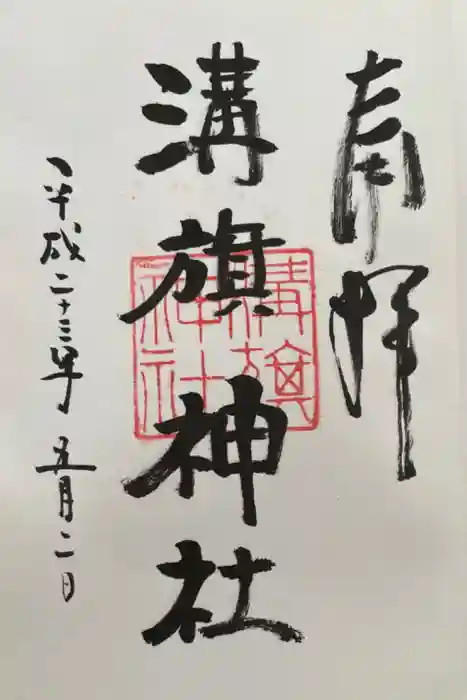 奉拝
溝旗神社
平成二十三年五月二日
溝旗
神社